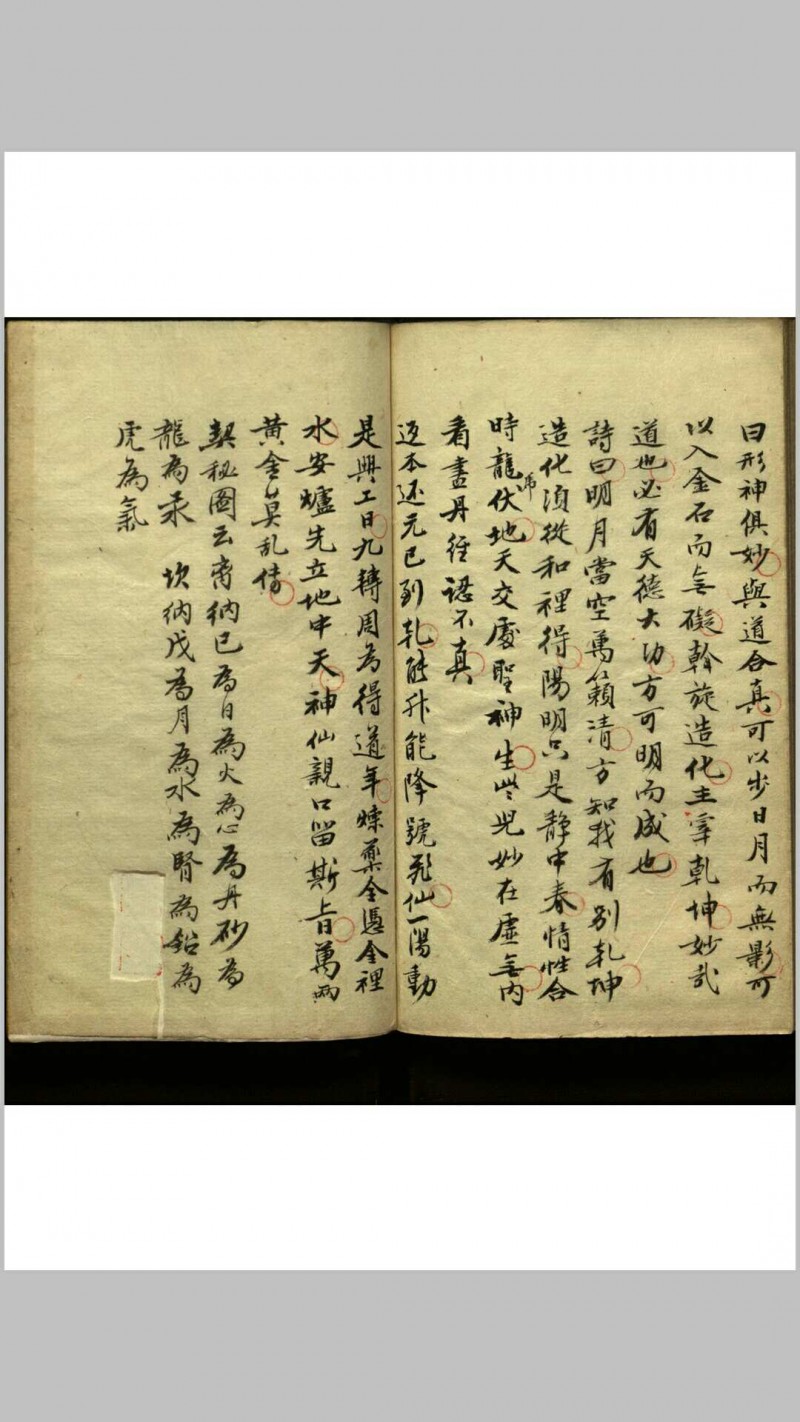 曰形神俱妙與道合真可以步日月而無影可
以入金石而无礙斡旋造化主宰乾坤妙哉
道也必有天德大功方可明而成也
詩曰明月當空萬籟清方知我有別乾坤
造化須從和裡得陽明只是靜中春情性合
時龍虎伏地天交處聖神生些兒妙在虛无內
看盡丹經認不真
返本還元已到乾能升能降號飛仙一陽動
是興工日九轉周為得道年煉藥全憑金裡
水安爐先立地中天神仙親口留斯旨萬兩
黃金莫乱傳
契秘圖云离納己為日為火為心為丹砂為
龍為汞 坎納戊為月為水為腎為鉛為
虎為氣